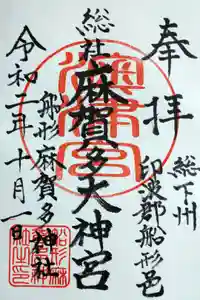 奉拝
総下州
印波郡船形邑
総社
麻賀多大神宮
令和二年十月一日
船形麻賀多
神社